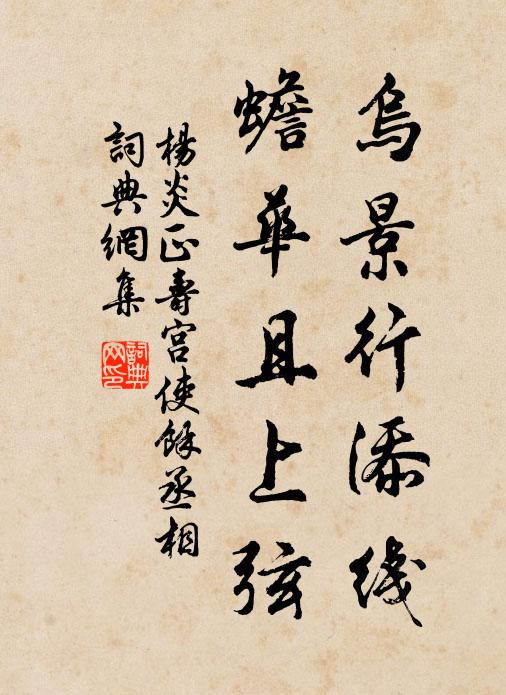 烏景行添线
蟾華且上弦
楊炎正壽宮使餘丞相
詞典網集
詞典网印